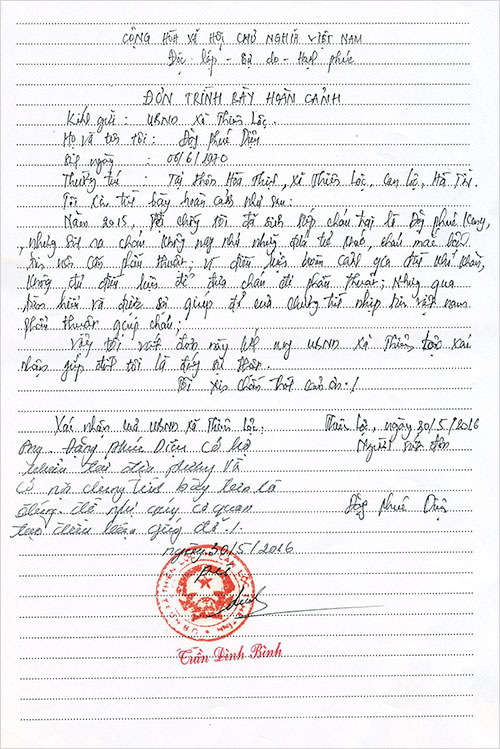 CỘNG HÒA XÃ HỘI CHỦ NGHĨA VIỆT NAM
Độc lập - Tự do - Hạnh phúc
ĐƠN TRÌNH BÀY HOÀN CẢNH
Kính gửi : UBND Xã Thiên Lộc.
Họ và tên tôi : Đặng Phúc Diệu
Sinh ngày : 06/6/1970
Thường trú : Tại thôn Hòa Thịnh, xã Thiên Lộc, Can Lộc, Hà Tĩnh.
Tôi xin trình bày hoàn cảnh như sau:
Năm 2015, Vợ chồng tôi đã sinh được cháu trai là Đặng Phúc Khang,
nhưng sinh ra cháu không may như những đứa trẻ khác, cháu mắc bệnh
tim nên cần phẫu thuật; vì điều kiện hoàn cảnh gia đình khó khăn,
không đủ điều kiện để đưa cháu đi phẫu thuật; Nhưng qua
tìm hiểu và được sự giúp đỡ của chương trình nhịp tim việt nam
phẫu thuật giúp cháu;
Vậy tôi viết đơn này UBND xã Thiên Lộc xác
nhận giúp đỡ tôi là đúng sự thật.
Tôi xin chân thành cảm ơn./.
Xác nhận của UBND xã Thiên Lộc:
Thiên Lộc, ngày 30/5/2016
Ông: Đặng Phúc Diệu Có hộ
Người viết đơn
khẩu tại địa phương và
có nội dung trình bày trên là
đúng. Đề nghị quý cơ quan
Đặng Phúc Diệu
tạo điều kiện giúp đỡ./.
ngày 30/5/2016
Trần Đình Bình